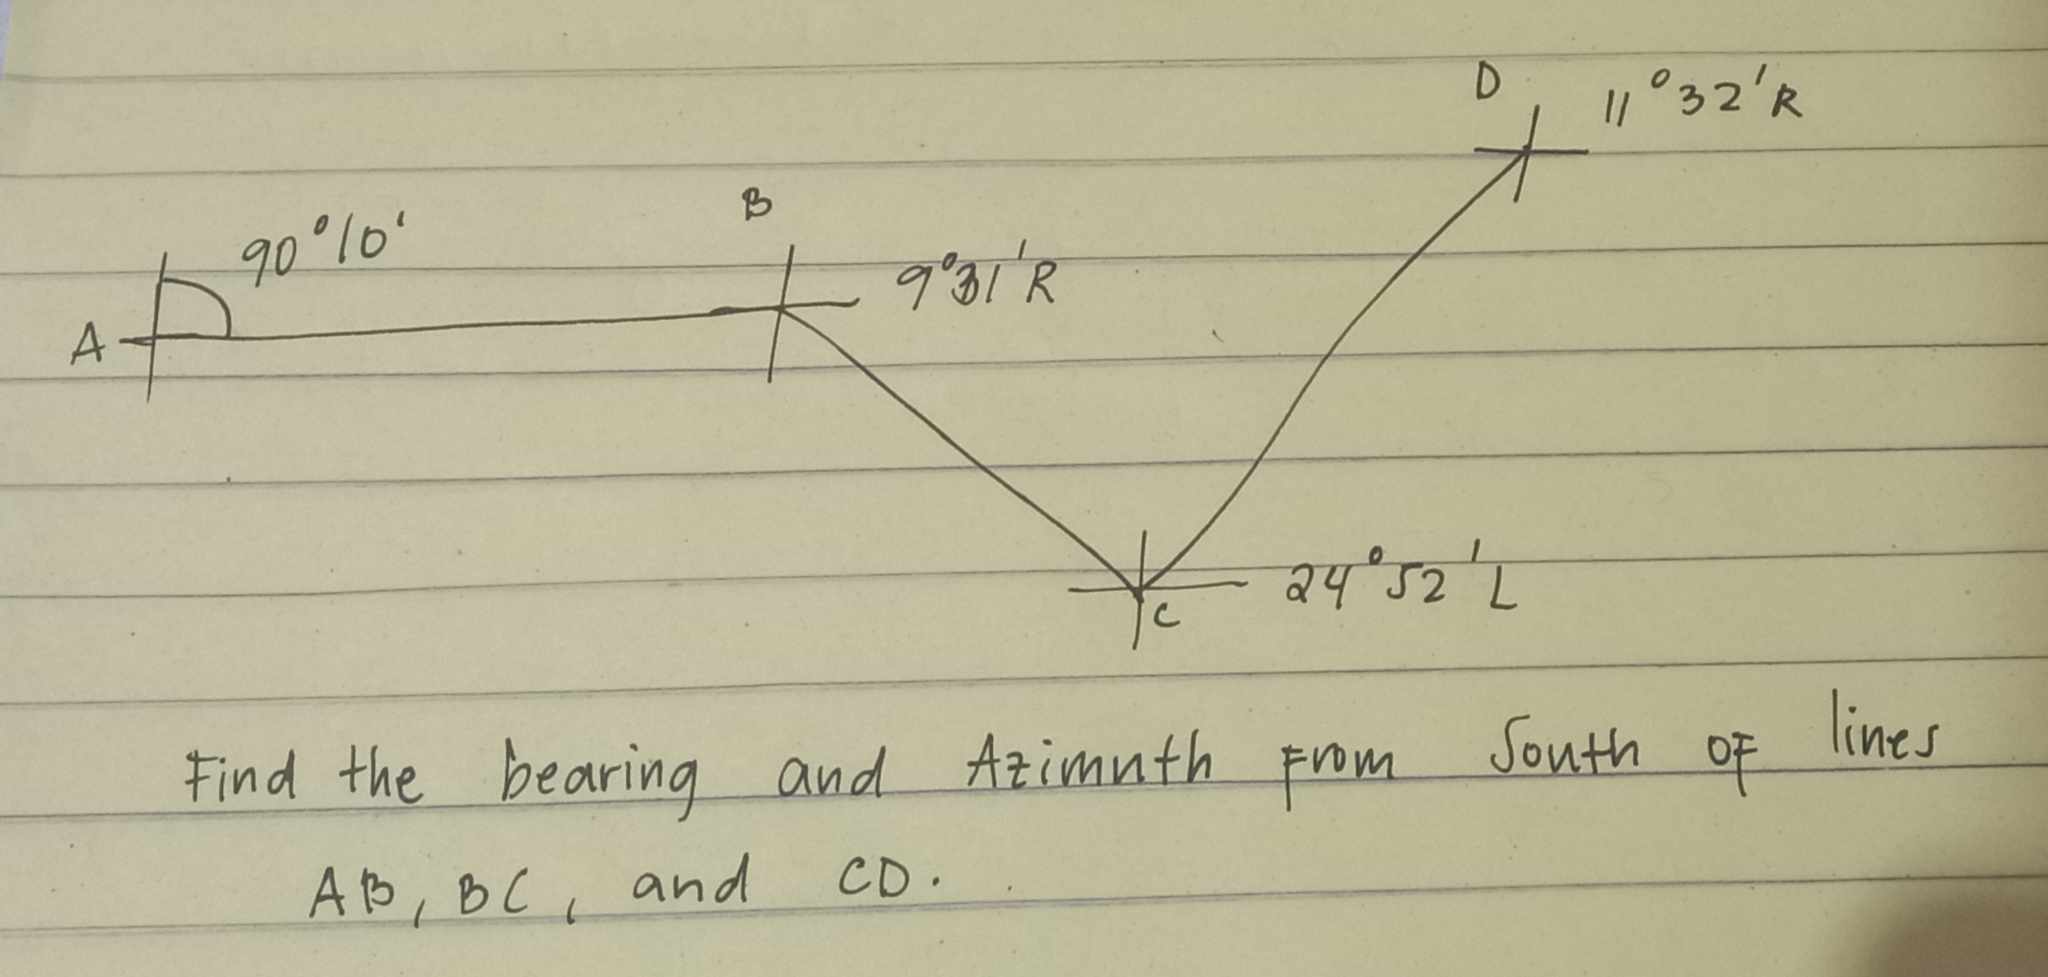 D 11°32'R
B
90°10'
9°31'R
A
24°52'L
C
Find the bearing and Azimuth From South OF lines
AB, BC, and CD.